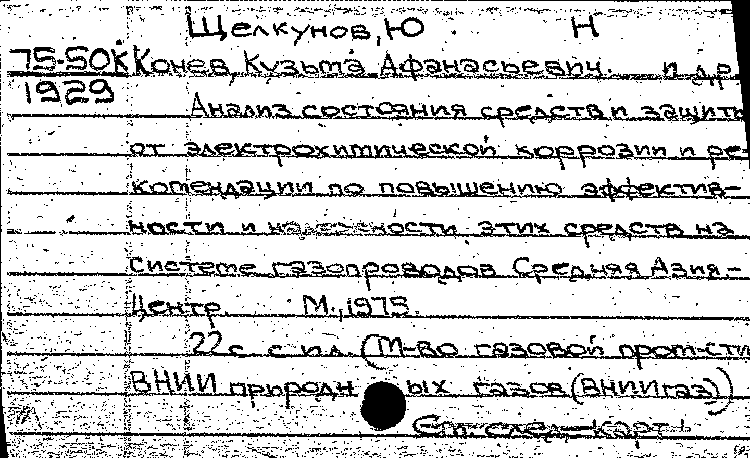 Щелкунов, Ю. Н
75-50к Конев, Кузьма Афанасьевич. и др
1929
Анализ состояния средств и защиты
от электрохимической коррозии и ре-
комендации по повышению эффектив-
ности и надежности этих средств на
системе газопроводов Средняя Азия-
Центр. М., 1975.
22 с. с ил. (М-во газовой пром-сти
ВНИИ природн ых газов (ВНИИгаз))
См. след. карт.